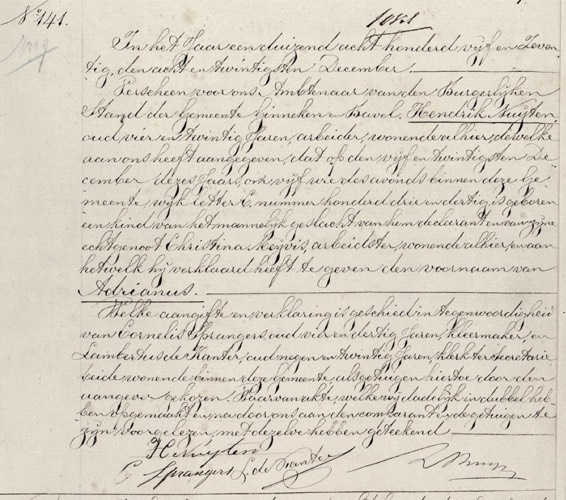 No 141.
In het Jaar een duizend acht honderd vijf en Zeven-
tig, den acht en twintigsten December
Verscheen voor ons Ambtenaar van den Burgerlijken
Stand der Gemeente Ginneken en Bavel, Hendrik Nuijten,
oud vier en twintig Jaren, arbeider, wonende alhier, dewelke
aan ons heeft aangegeven, dat op den vijf en twintigsten De-
cember dezes Jaars, om vijf ure des avonds binnen deze Ge-
meente, wijk letter C, nummer honderd drie en dertig is geboren
een kind van het mannelijk geslacht van hem declarant en van zijne
echtgenoot Christina, arbeidster, wonende alhier, en aan
hetwelk hij verklaard heeft te geven den voornaam van
Adrianus.
Welke aangifte en verklaring is geschied in tegenwoordigheid
van Cornelis Sprangers, oud vier en dertig Jaren, kleermaker, en
Lambertus de Kanter, oud negen en twintig Jaren, klerk ter secretarie
beide wonende binnen deze gemeente, als getuigen hiertoe door den
aangever gekozen. Waarvan akte, welke wij dadelijk in dubbel heb-
ben opgemaakt en na door ons aan den comparant en de getuigen te
zijn voorgelezen, met dezelve hebben geteekend
H Nuijten
C Sprangers L. de Kanter